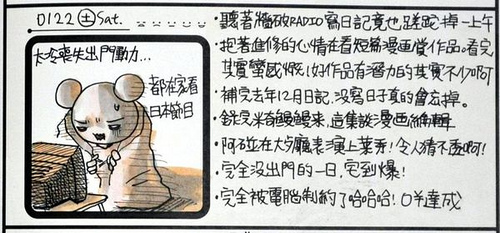 0122 (土) Sat.
太冷喪失出門動力…
都在家看
日本節目
・聽著牆破RADIO寫日記竟也蹉跎掉一上午
・抱著進修的心情在看短篇漫畫當作品。看完
其實蠻感慨!好作品有潛力的其實不少啊
・補完去年12月日記,沒寫日子真的會忘掉。
這集談漫畫編輯
・阿碰在大廳表演上菜秀!令人猜不透啊!
・完全沒出門的一日,宅到爆!
・完全被電腦制約了哈哈哈!○羊達成